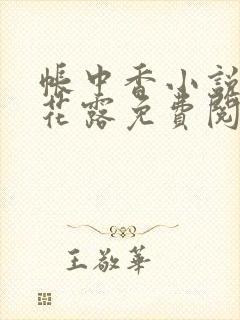 帳中香小說
花露免費閱
王敬華